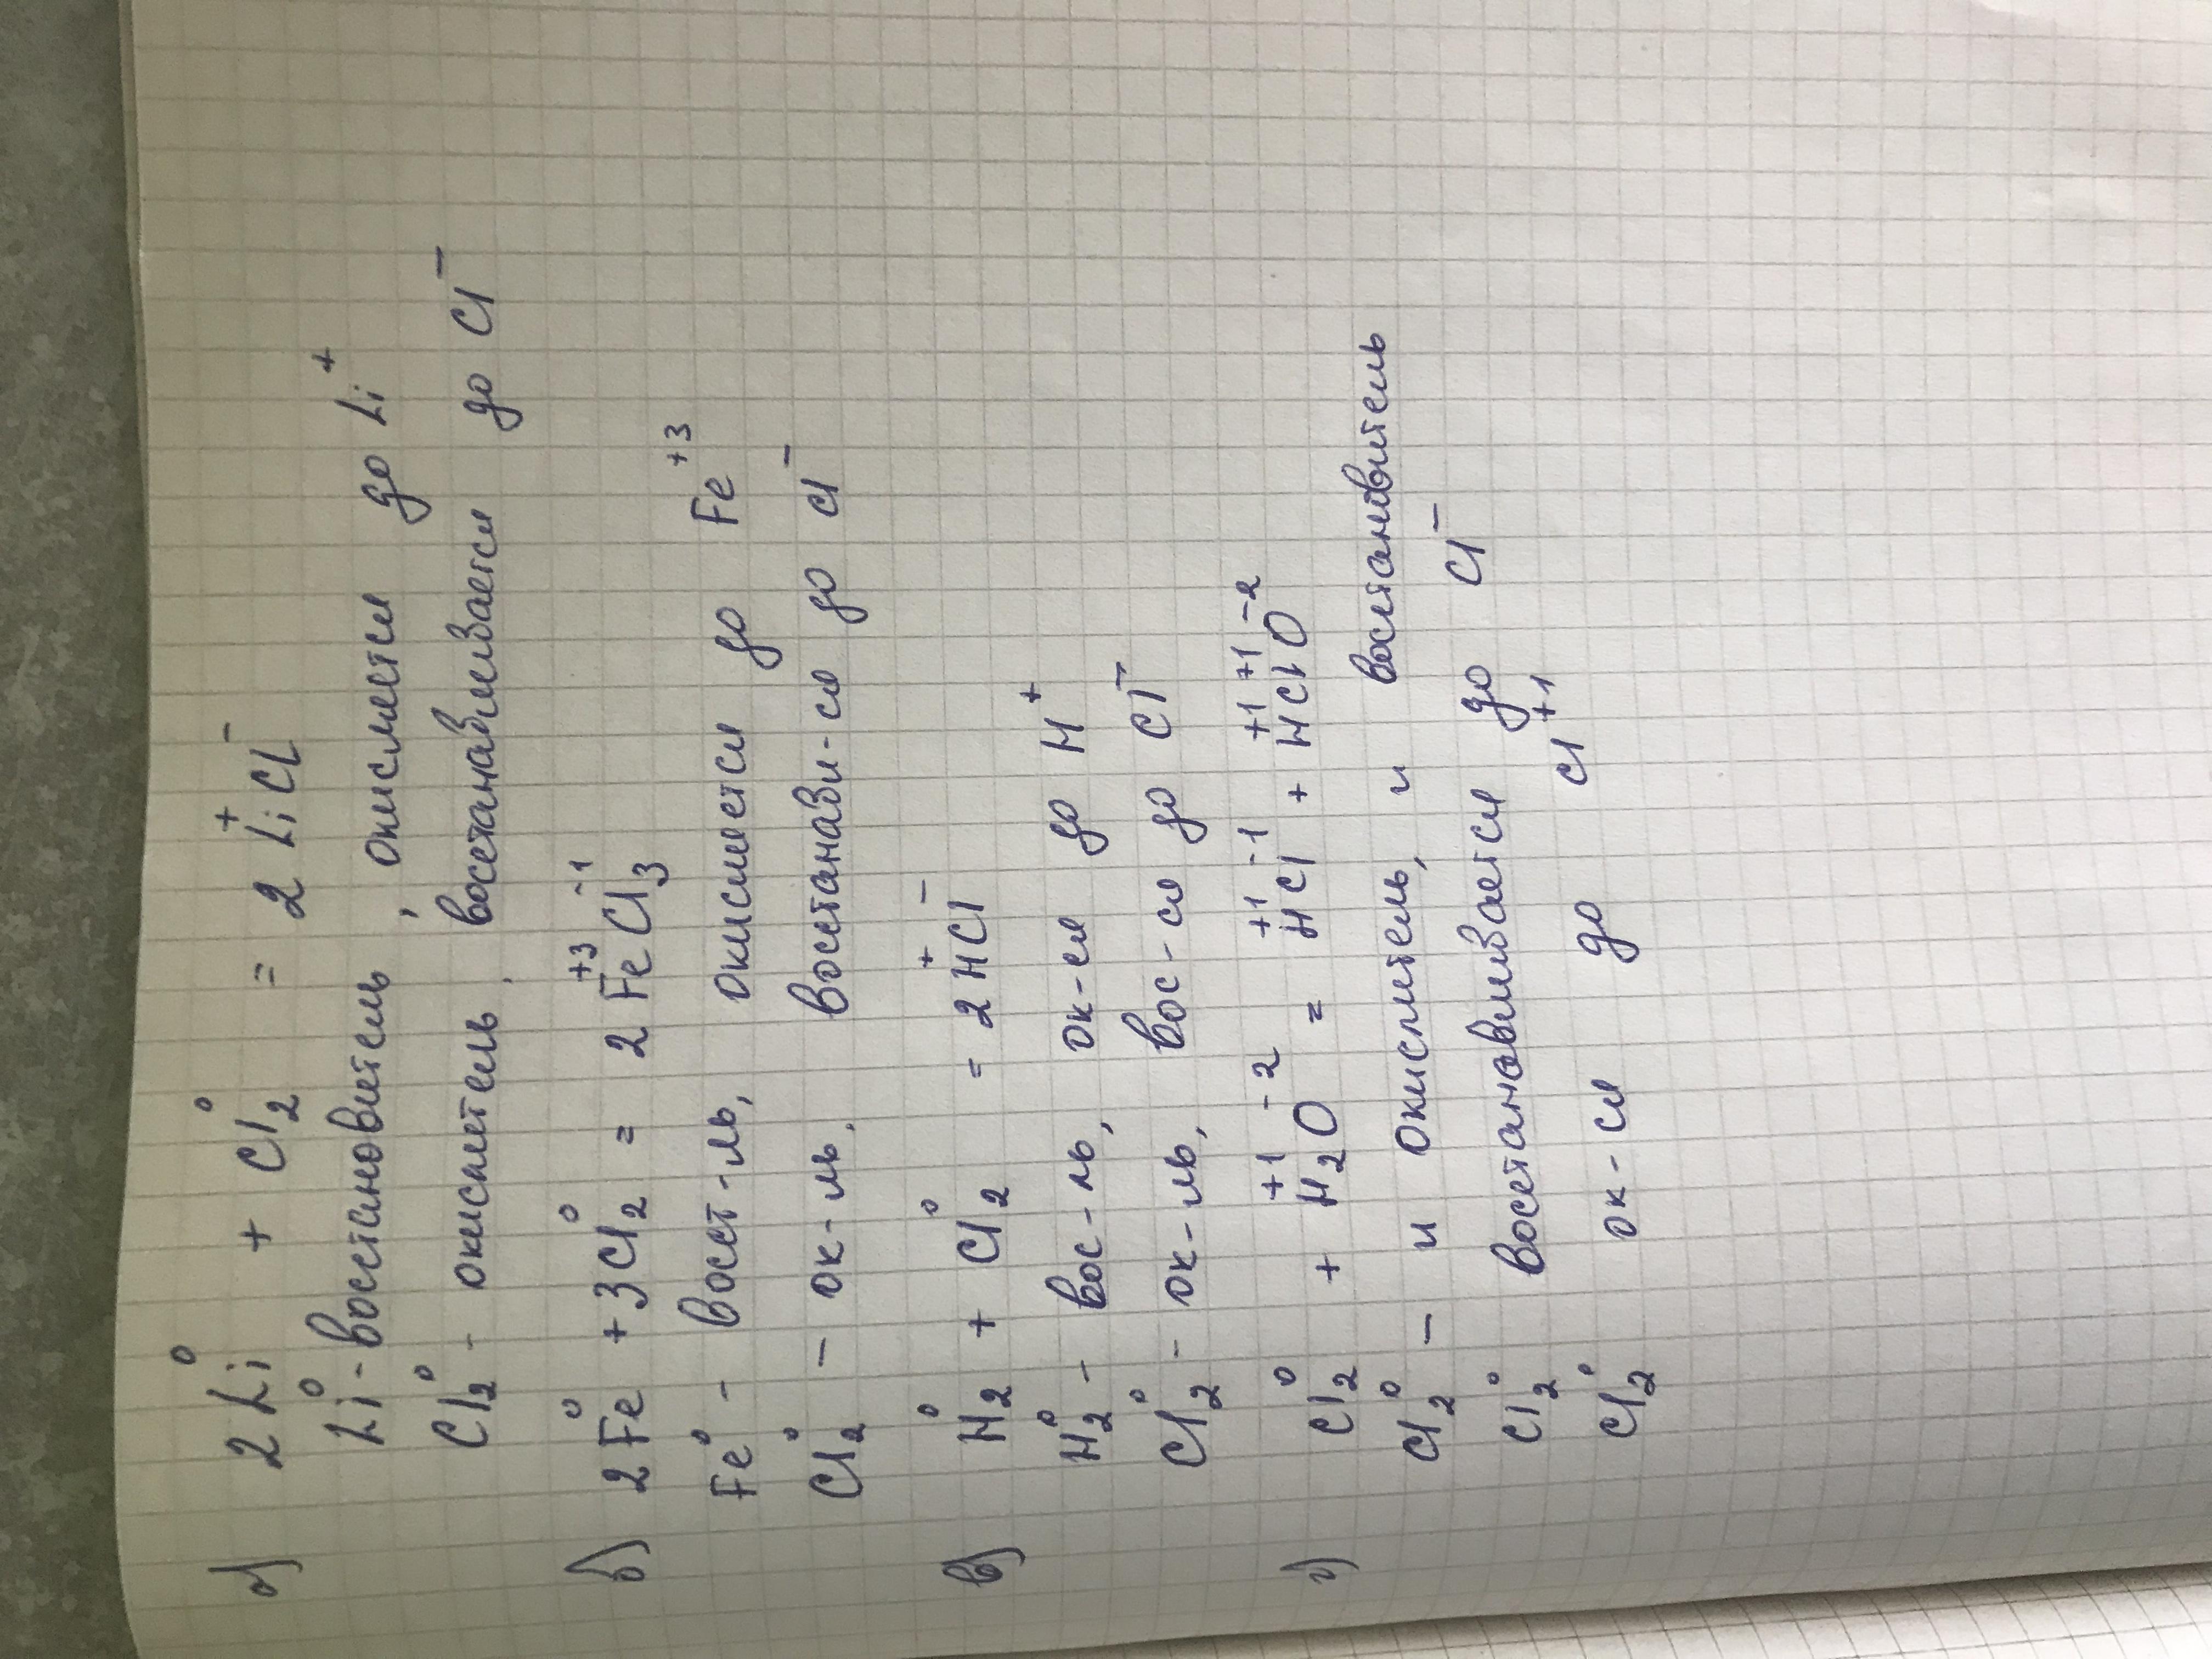 а) 2Li⁰ + Cl₂⁰ = 2Li⁺Cl⁻
Li⁰ - восстановитель, окисляется до Li⁺
Cl₂⁰ - окислитель, восстанавливается до Cl⁻
б) 2Fe⁰ + 3Cl₂⁰ = 2Fe⁺³Cl₃⁻¹
Fe⁰ - восст-ль, окисляется до Fe⁺³
Cl₂⁰ - ок-ль, восстанавл-ся до Cl⁻
в) H₂⁰ + Cl₂⁰ = 2H⁺Cl⁻
H₂⁰ - вос-ль, ок-ся до H⁺
Cl₂⁰ - ок-ль, вос-ся до Cl⁻
г) Cl₂⁰ + H₂⁺¹O⁻² = H⁺¹Cl⁻¹ + H⁺¹Cl⁺¹O⁻²
Cl₂⁰ - и окислитель, и восстановитель
Cl₂⁰ восстанавливается до Cl⁻
Cl₂⁰ ок-ся до Cl⁺¹